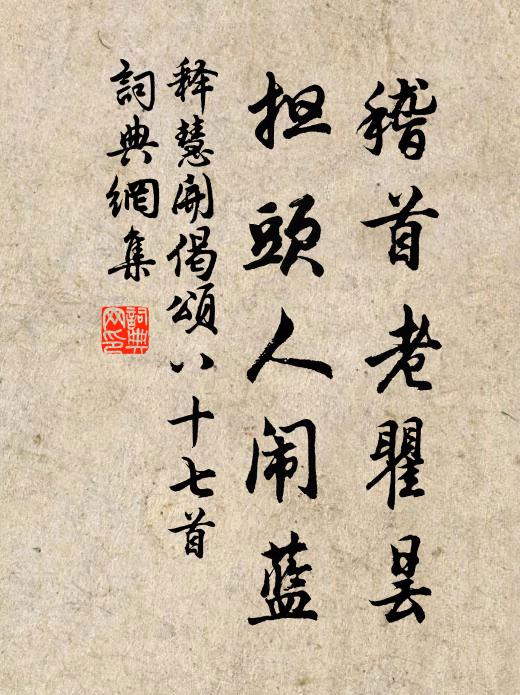 稽首老瞿昙
担頭人闹蓝
释慧開偈頌八十七首
詞典網集
詞典網印